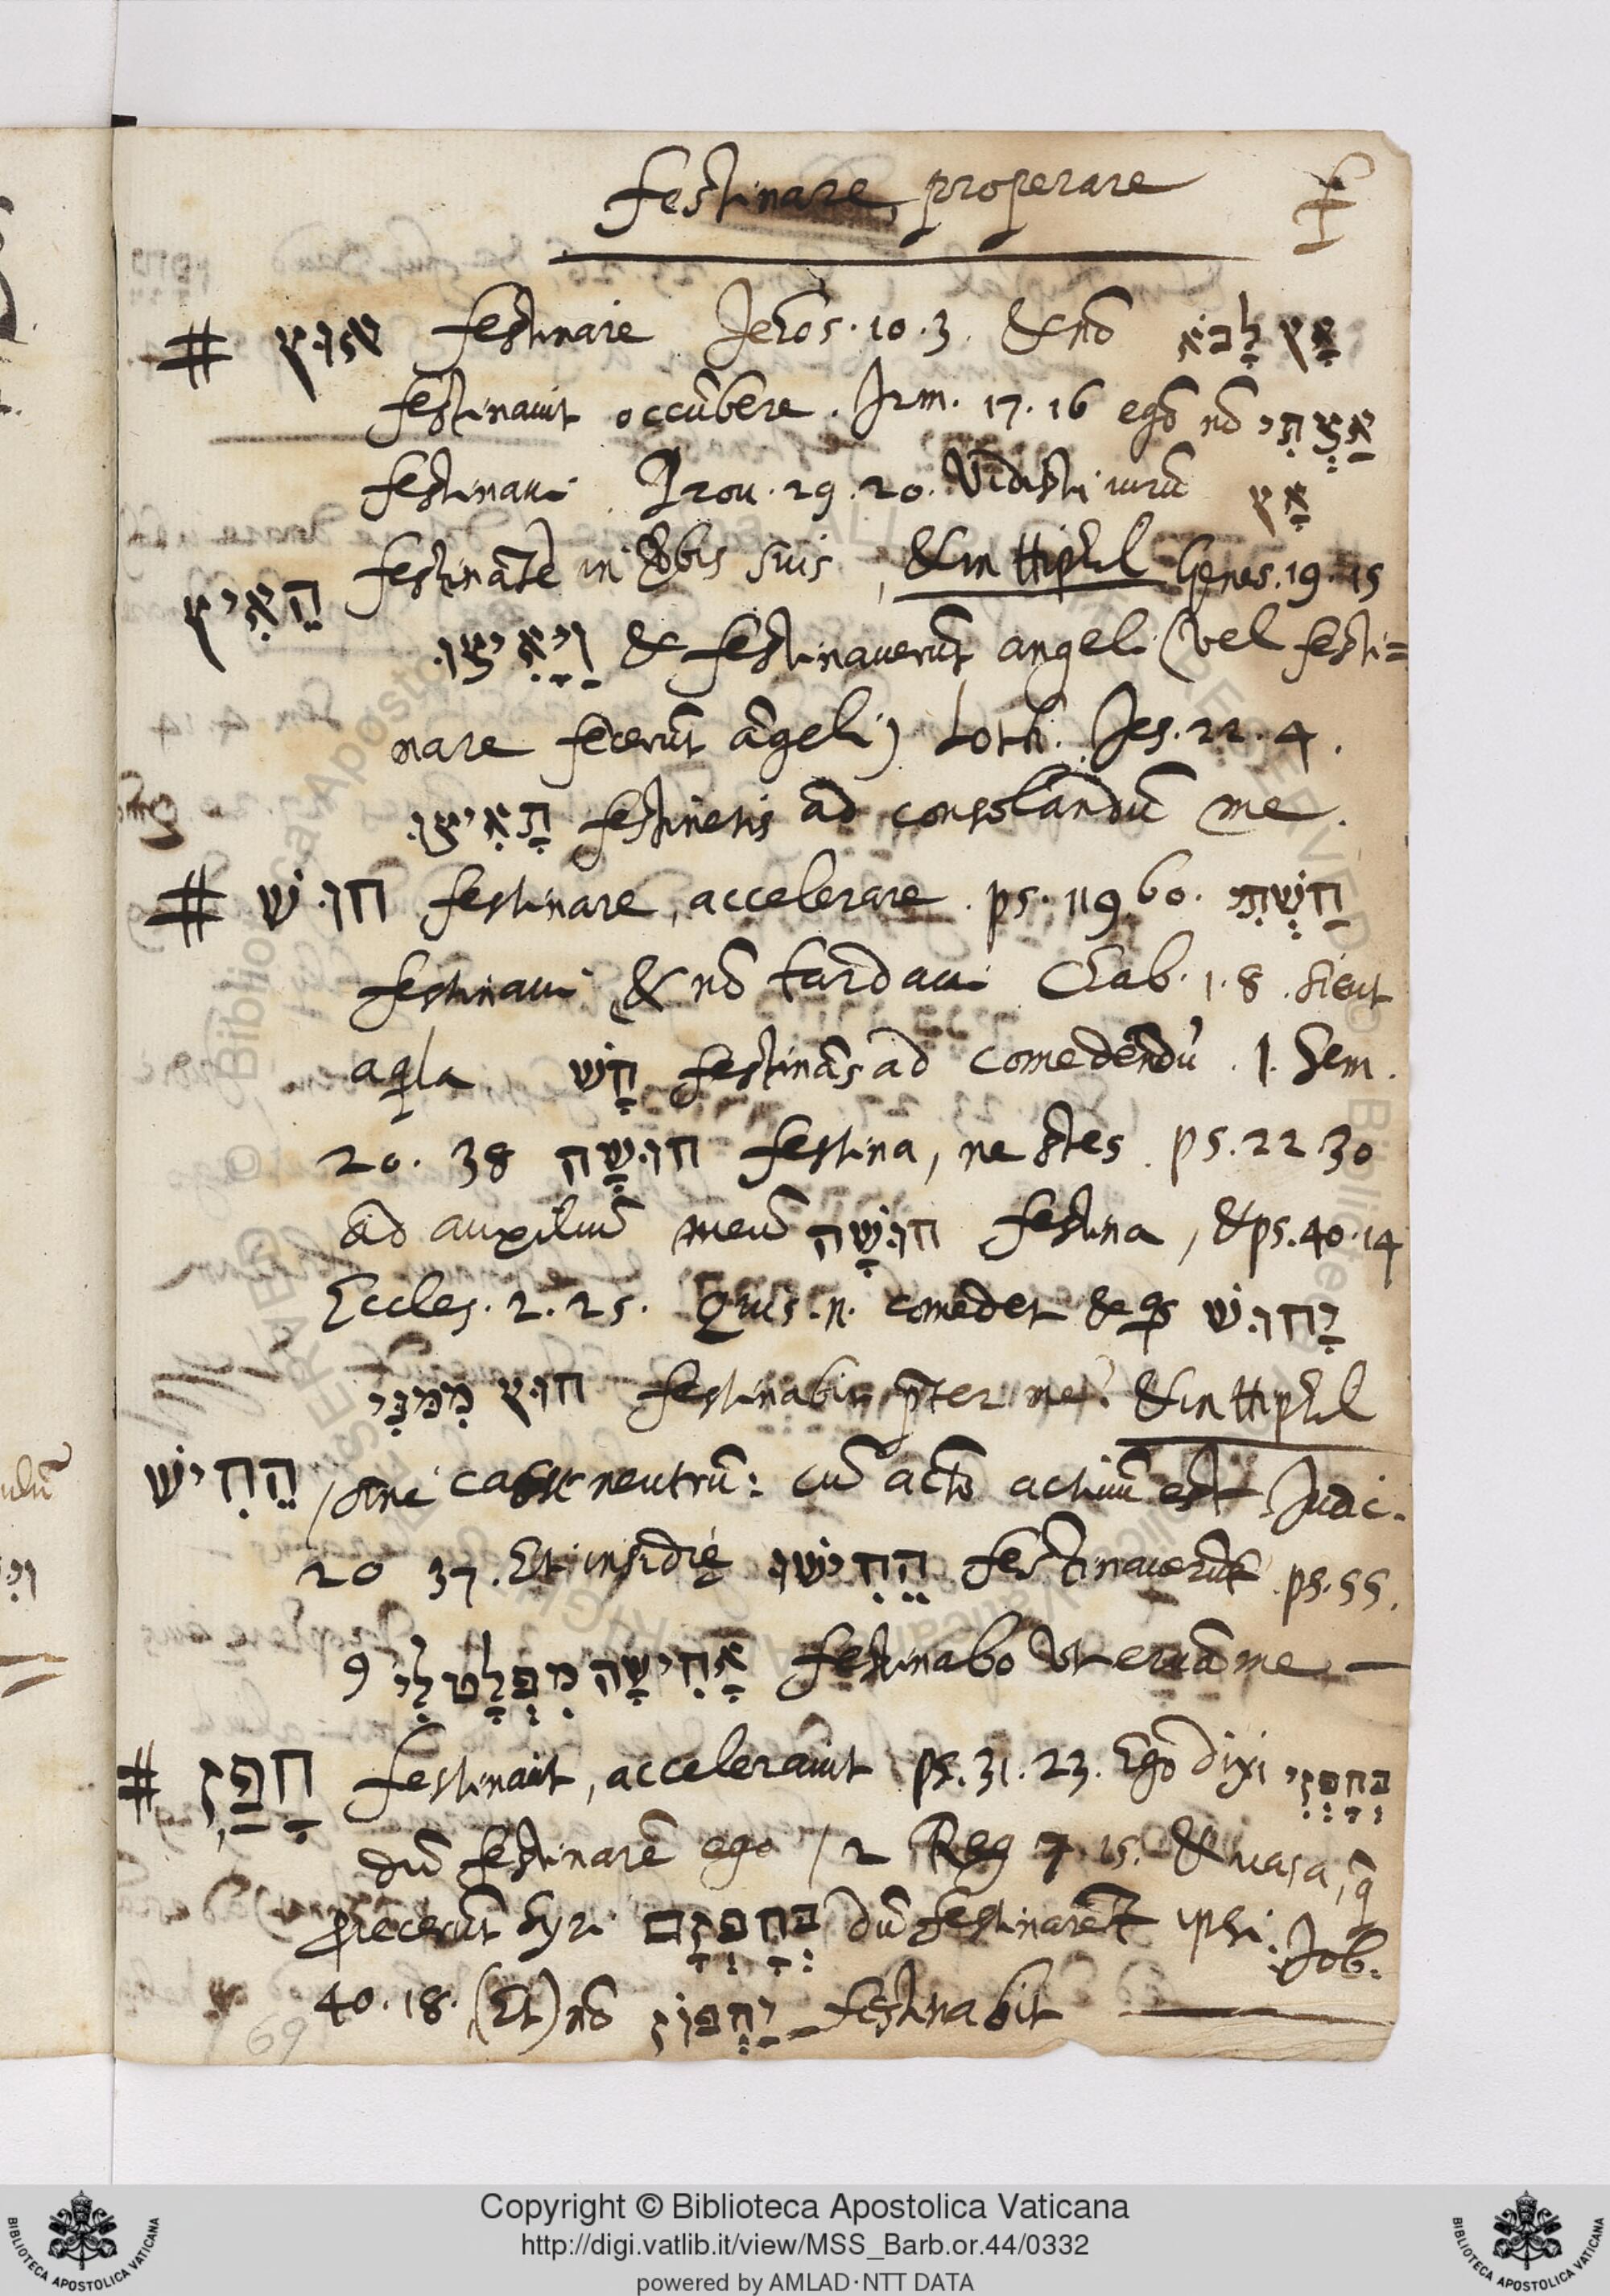 festinare, properare
F
# אוּץ festinare Jeos. 10. 3. & nō אָץ לָבֹא
festinauit occūbere. Irm. 17. 16 ego nō אַצְתִּי
festinaui Prou. 29. 20. Vidisti uirū אָץ
festinātē in ūbis suis, & in Hiphil Genes. 19. 15
הֵאִיץ
וַיָּאִיצוּ & festinauerūt angeli (vel festi=
nare fecerūt āgeli) Loth. Jes. 22. 4.
תָּאִיצוּ festinetis ad consolandū me.
# חוּשׁ festinare, accelerare. ps. 119. 60. חַשְׁתִּי
festinaui & nō tardaui Chab. 1. 8. sicut
aqla חָשׁ festinās ad comedēdū. 1. Sem.
20. 38 חוּשָׁה festina, ne stes. ps. 22 30
ad auxiliū meū חוּשָׁה festina, & ps. 40. 14
Eccles. 2. 25. Quis. n. comedet & qs יָחוּשׁ
חוּץ מִמֶּנִּי festinabit pter me? & in Hiphil
הֵחִישׁ / sine casu neutrū: cū acto actiuū est Judic.
20 37. Et insidię הֵחִישׁוּ festinauerūt ps. 55.
9 אָחִישָׁה מִפְלָט לִי festinabo Vt eruā me —
# חָפַז festinauit, accelerauit ps. 31. 23. Ego dixi בְחָפְזִי
dū festinarē ego / 2 Reg 7 15. & uasa, q
proiecerūt Syri בְּחָפְזָם dū festinarēt ipsi. Job.
40. 18. (Et) nō יַחְפּוֹז festinabit
69
Copyright © Biblioteca Apostolica Vaticana
http://digi.vatlib.it/view/MSS_Barb.or.44/0332
powered by AMLAD·NTT DATA
BIBLIOTECA APOSTOLICA VATICANA
BIBLIOTECA APOSTOLICA VATICANA